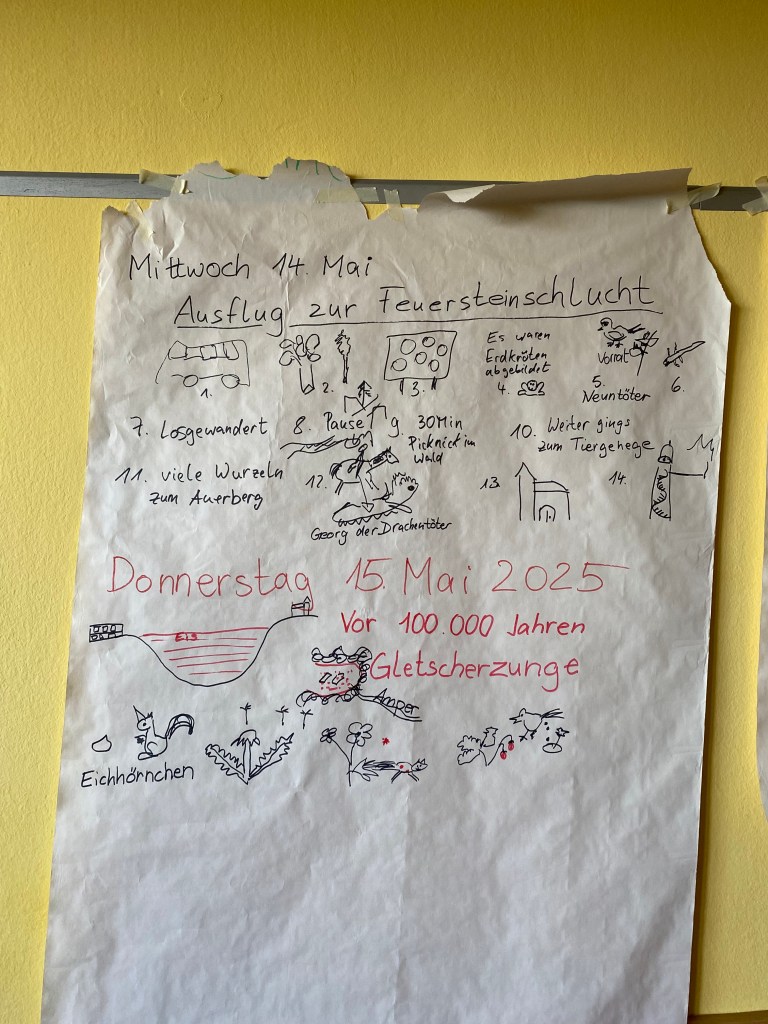 Mittwoch 14. Mai
Ausflug zur Feuersteinschlucht
1.
2.
3.
Es waren
Erdkröten
abgebildet
4.
Vorrat
5.
Neuntöter
6.
7. Losgewandert
8. Pause
9. 30Min
Picknick im
Wald
10. Weiter gings
zum Tiergehege
11. viele Wurzeln
zum Auerberg
12.
Georg der Drachentöter
13.
14.
Donnerstag 15. Mai 2025
Eis
Vor 100.000 Jahren
Gletscherzunge
Amper
Eichhörnchen